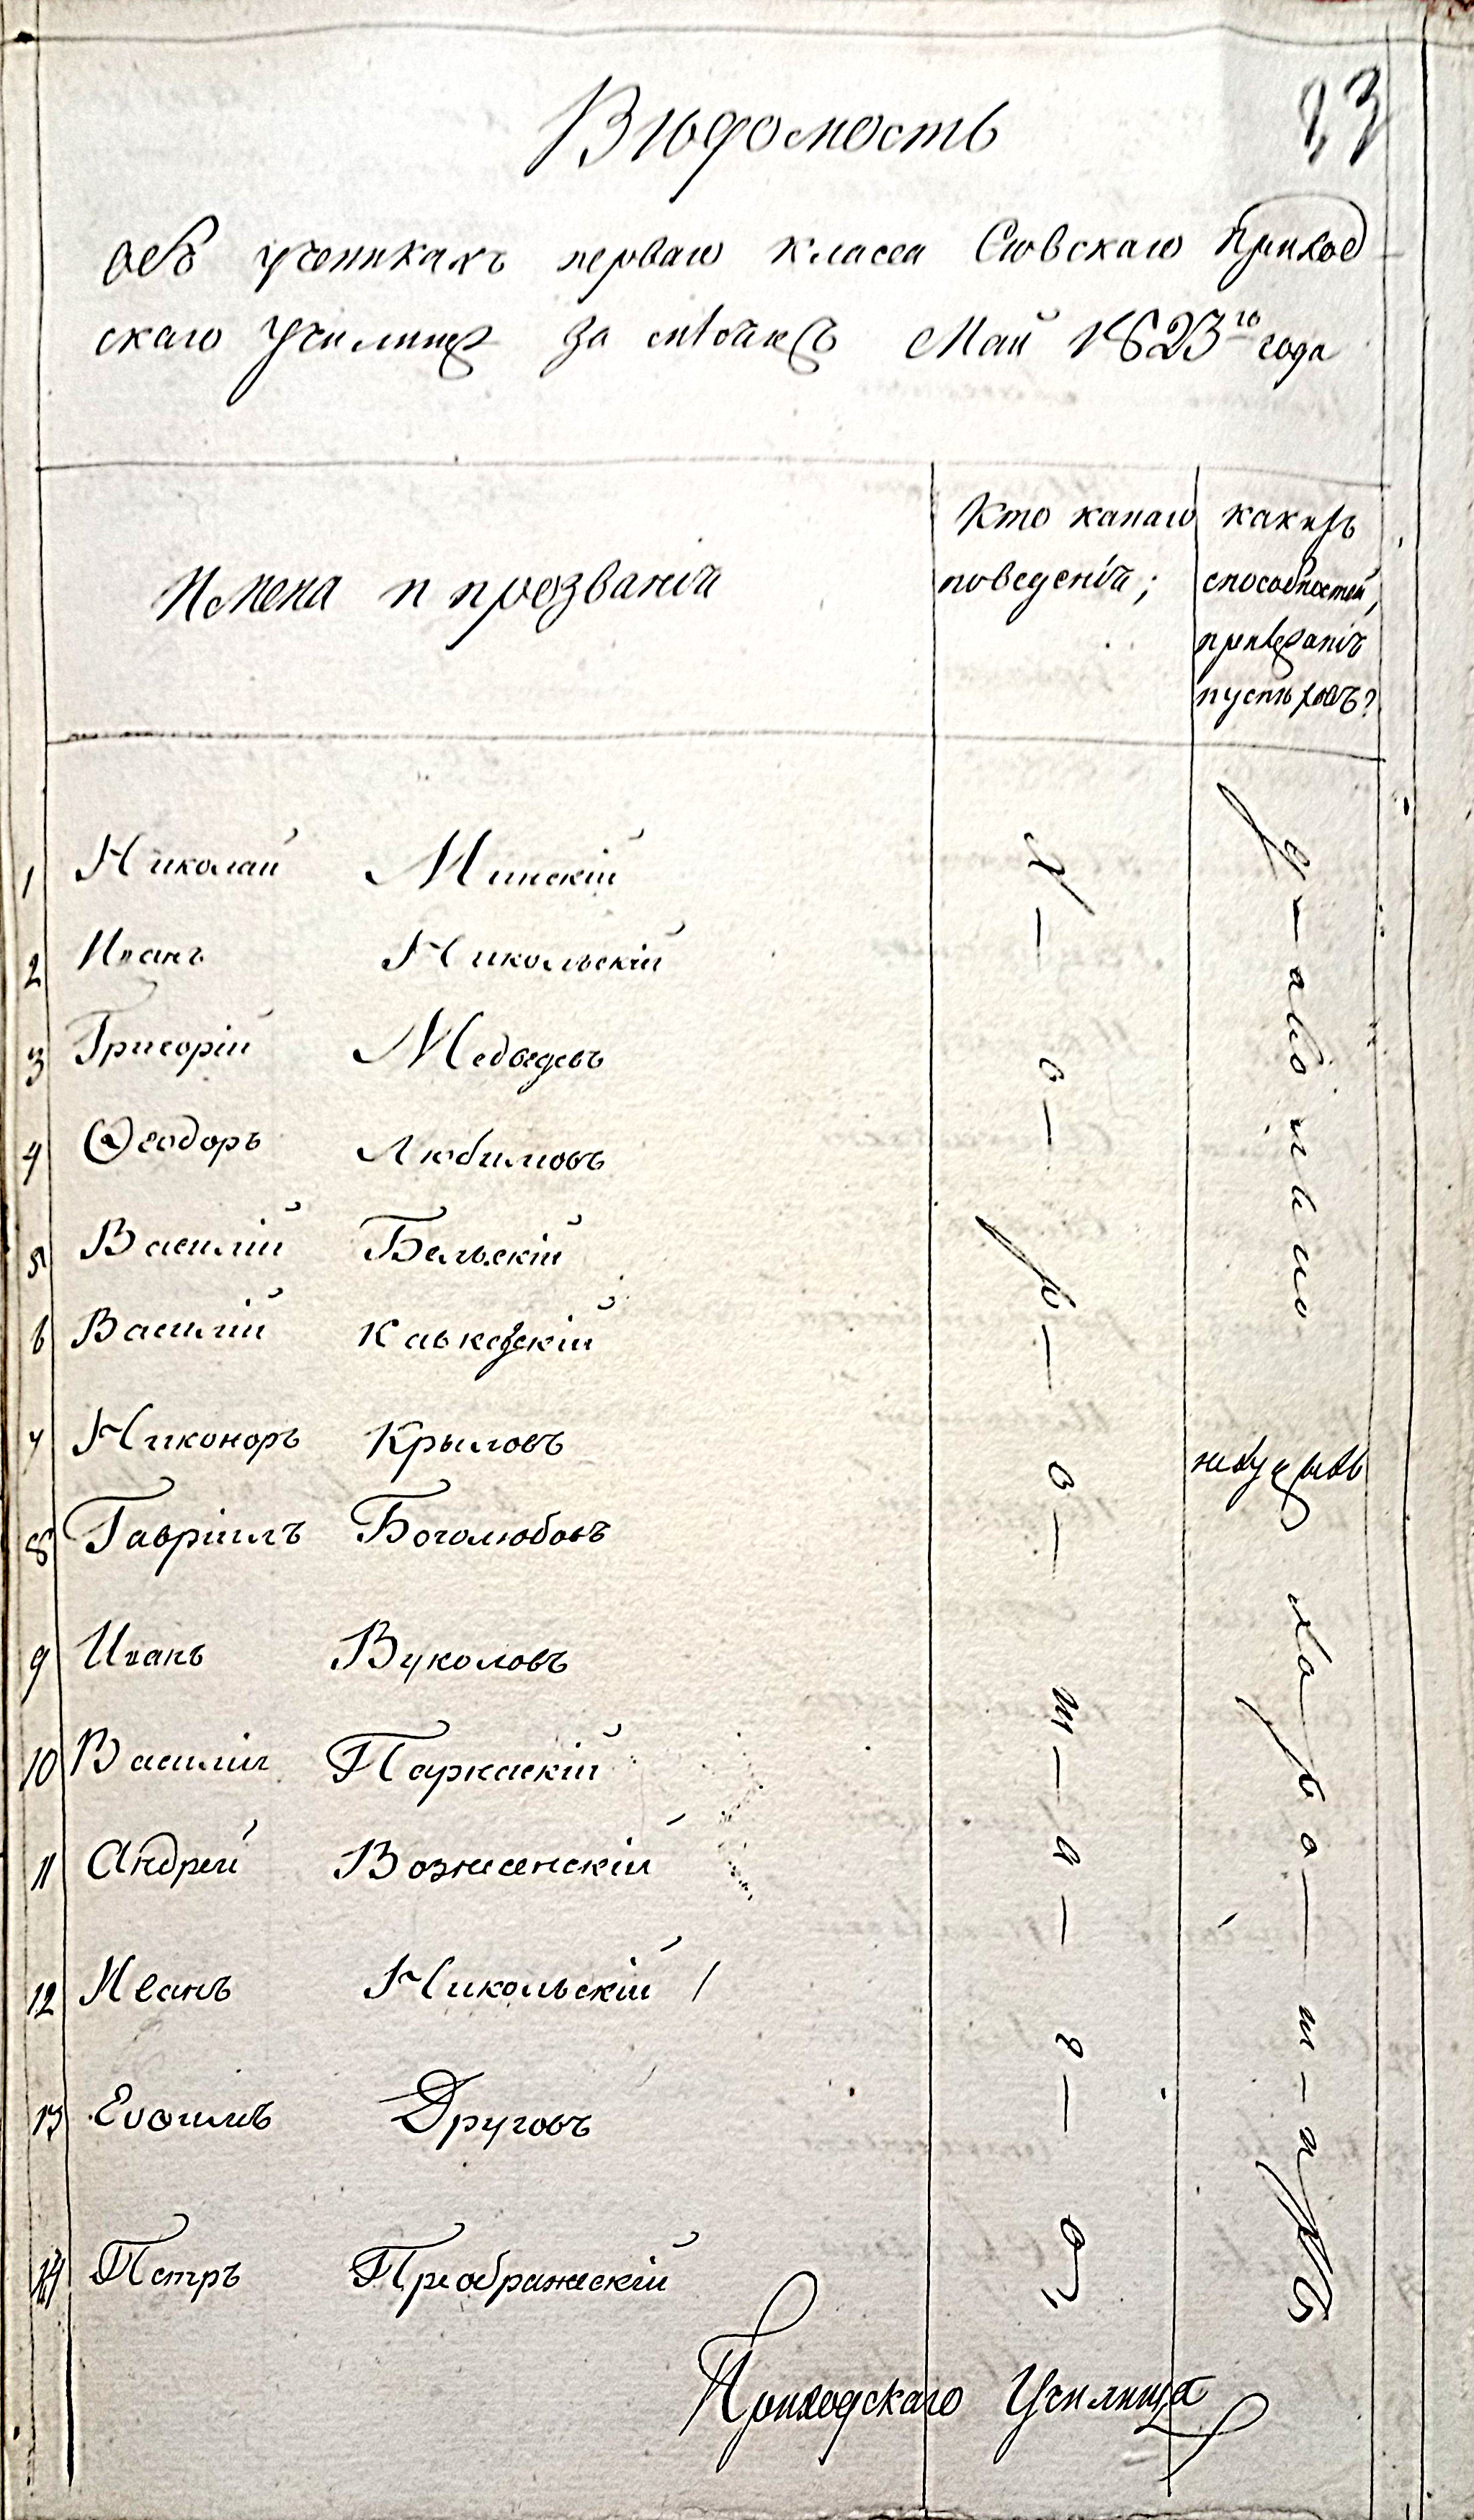 23
Вѣдомость
объ ученикахъ перваго класса Сѣвскаго Приход
скаго Училища за мѣсяцъ Май 1823го года
Имена и прозванія
Кто какаго
поведенія;
какихъ
способностей,
прилѣжанія
и успѣховъ?
1 Николай Минскій
2 Иванъ Никольскій
3 Григорій Медведевъ
4 Ѳеодоръ Любимовъ
5 Василій Бельскій
6 Василій
7 Никоноръ Крыловъ
8 Гавріилъ Боголюбовъ
9 Иванъ Вуколовъ
10 Василій
11 Андрей Вознесенскій
12 Иванъ Никольскій
13 Евѳимъ Друговъ
14 Петръ Преображескій
Х — о — р — о — ш — а — г — о
хоро — ш — а
Приходскаго Училища